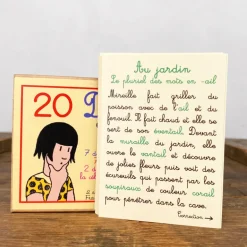 20 D
7
2
la
Au jardin
Le pluriel des mots en -ail
Mireille fait griller du
poisson avec de l'ail et du
fenouil. Il fait chaud et elle se
sert de son éventail. Devant
la muraille du jardin, elle
ouvre le vantail et découvre
de jolies fleurs puis voit des
écureuils qui passent par les
soupiraux de couleur corail
pour pénétrer dans la cave.
Correction →